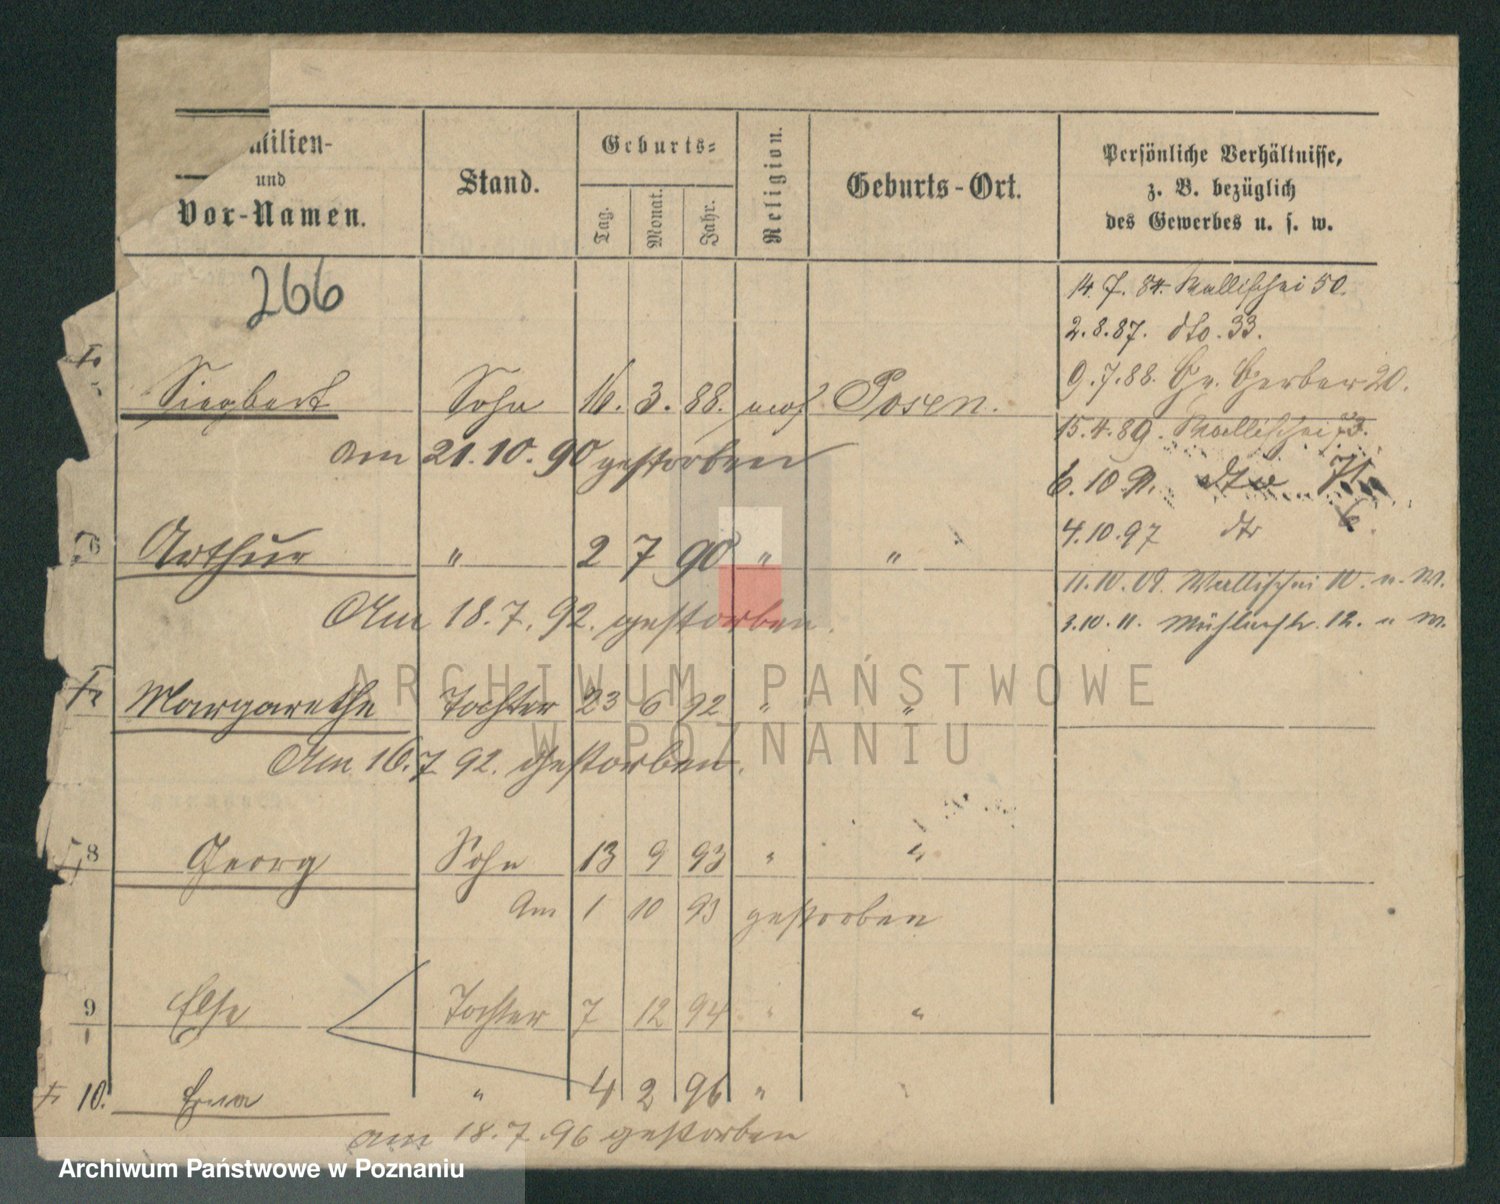 milien-
und
Vor-Namen.
Stand.
Geburts-
Tag.
Monat.
Jahr.
Religion.
Geburts-Ort.
Persönliche Verhältnisse,
z. B. bezüglich
des Gewerbes u. s. w.
266
14.7.84. Wallischei 50.
2.8.87. dto. 33.
9.7.88. Gr. Gerber 20.
Siegbert Sohn 16. 3. 88. mos Posen.
15.4.89. Wallischei 73.
am 21.10.90 gestorben
6.10.91. dto 71
6 Arthur " 2 7 90 " "
4.10.97 dto 6
11.10.09. Wallischei 10. u. W.
Am 18.7.92. gestorben.
3.10.11. Mühlenstr. 12. u W.
Margarethe Tochter 23 6 92 " "
Am 16.7 92. gestorben.
8 Georg Sohn 13 9 93 " "
Am 1 10 93 gestorben
9 Else Tochter 7 12 94 " "
10. Erna " 4 2 96 " "
am 18.7.96 gestorben
ARCHIWUM PAŃSTWOWE
W POZNANIU
Archiwum Państwowe w Poznaniu